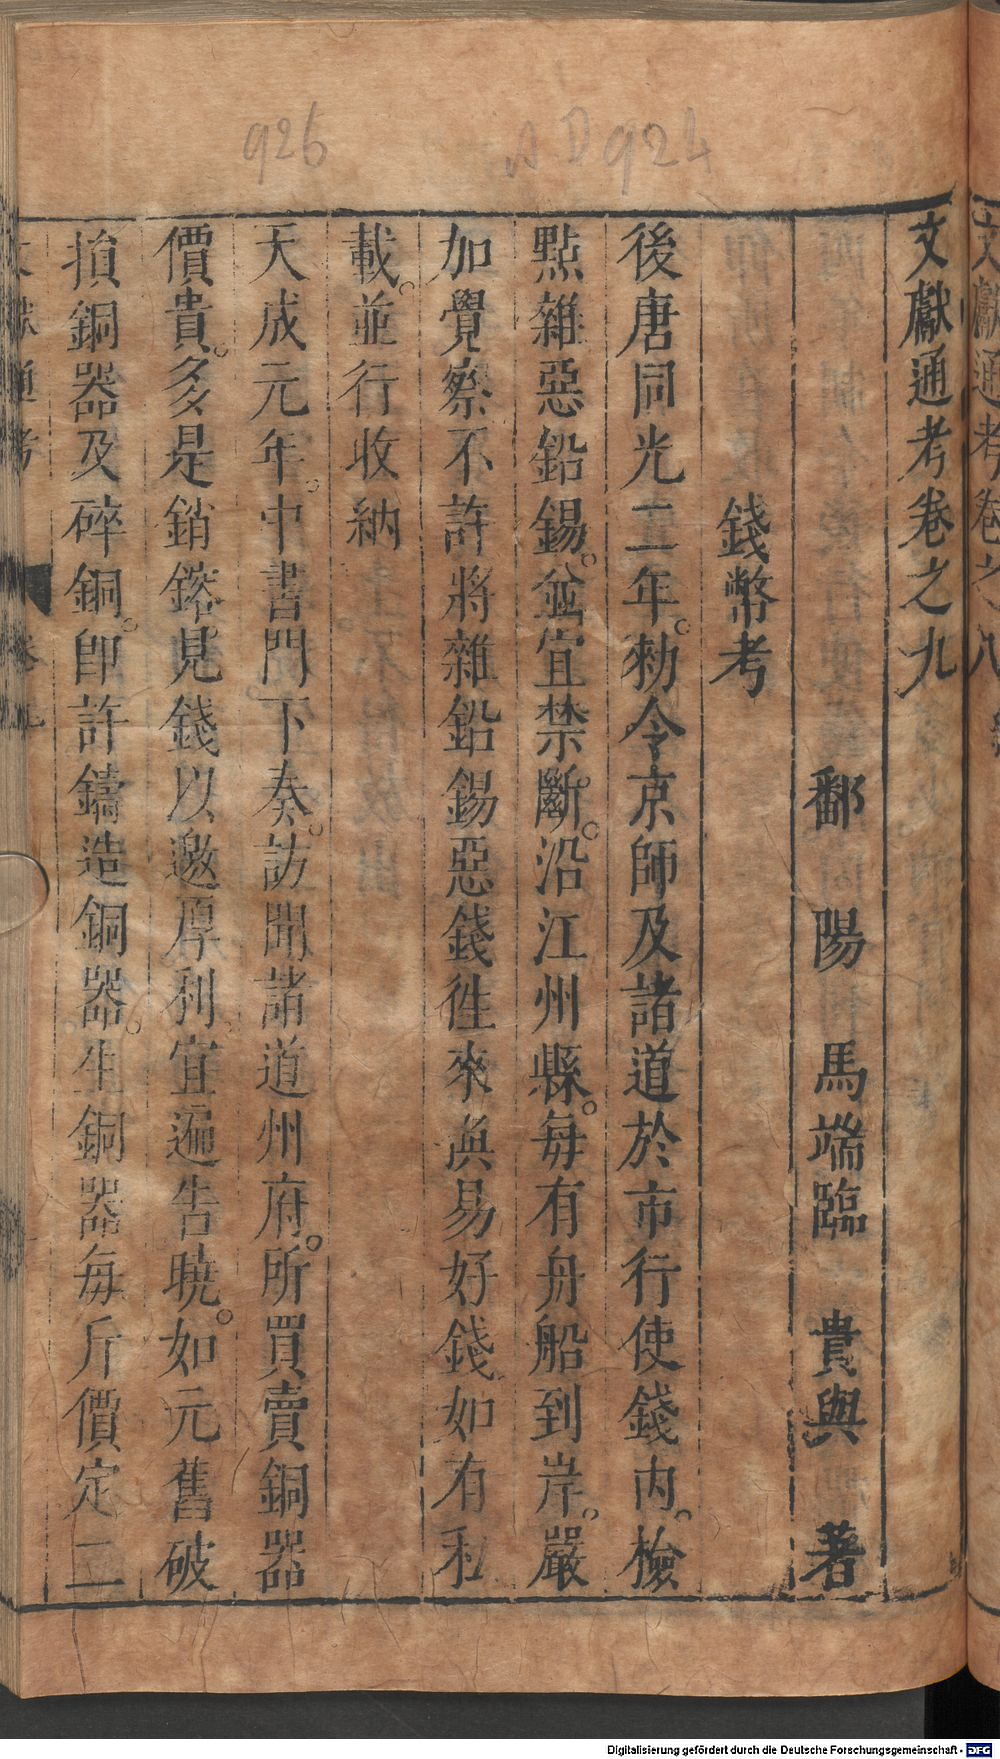 926
AD924
文獻通考卷之九
鄱陽馬端臨貴與著
錢幣考
後唐同光二年。勑令京師及諸道於市行使錢內。檢
點雜惡鉛錫。並宜禁斷。沿江州縣。每有舟船到岸。嚴
加覺察不許將雜鉛錫惡錢徃來換易好錢如有私
載。並行收納
天成元年。中書門下奏。訪聞諸道州府。所買賣銅器
價貴。多是銷鎔見錢以邀厚利宜遍告曉。如元舊破
損銅器及碎銅。卽許鑄造銅器。生銅器每斤價定二
文獻通考 卷九
文獻通考卷之八
Digitalisierung gefördert durch die Deutsche Forschungsgemeinschaft - DFG